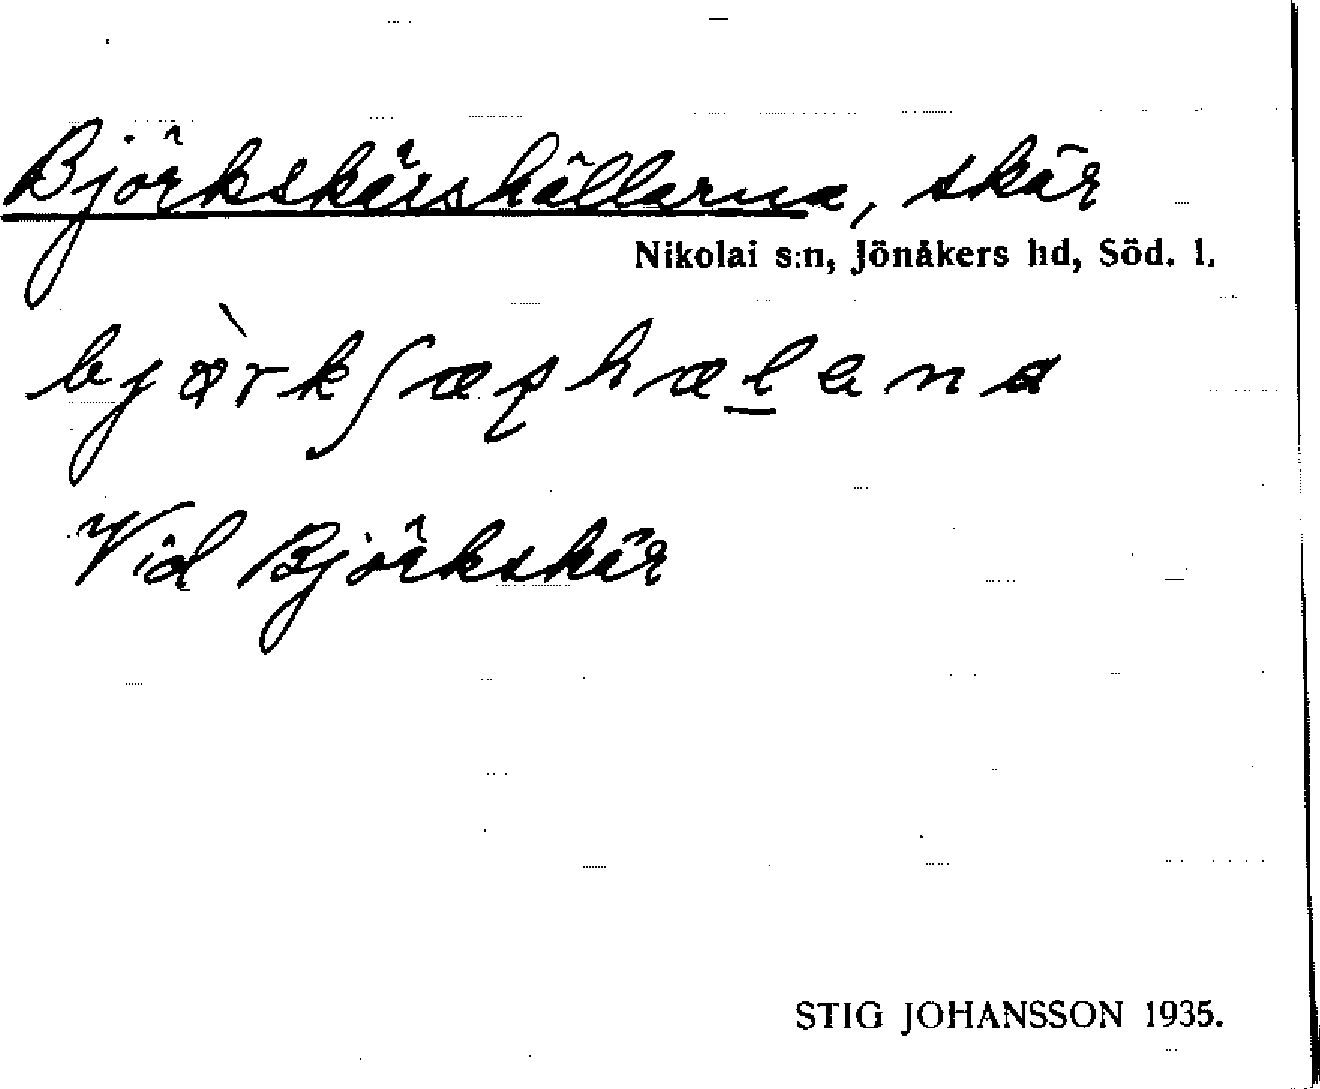 Björkskärshällarna, skär
Nikolai s:n, Jönåkers hd, Söd. l.
Vid Björkskär
STIG JOHANSSON 1935.